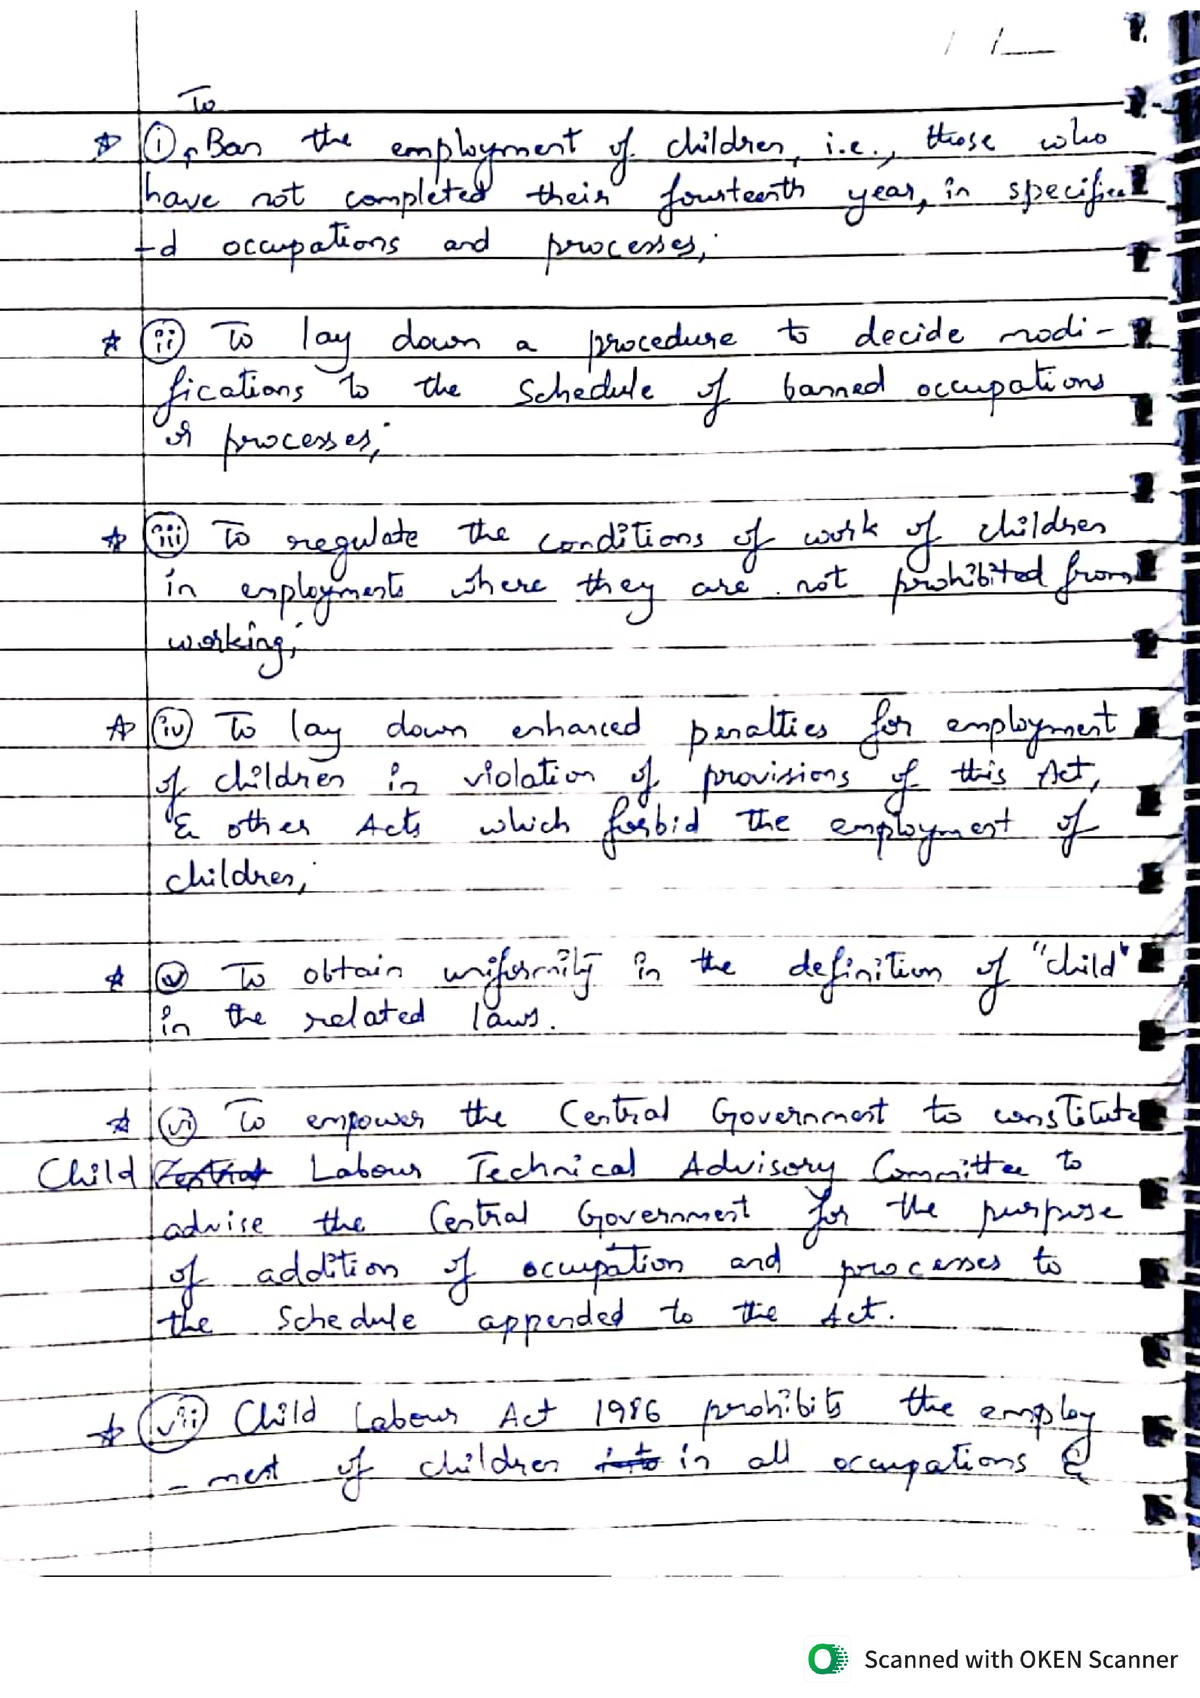 / /
To
☆ (i) Ban the employment of children, i.e., those who
have not completed their fourteenth year, in specifie
-d occupations and processes;
☆ (ii) To lay down a procedure to decide modi-
fications to the Schedule of banned occupations
or processes;
☆ (iii) To regulate the conditions of work of children
in employments where they are not prohibited from
working;
☆ (iv) To lay down enhanced penalties for employment
of children in violation of provisions of this Act,
& other Acts which forbid the employment of
children;
☆ (v) To obtain uniformity in the definition of "child"
in the related laws.
☆ (vi) To empower the Central Government to constitute
Child Labour Technical Advisory Committee to
advise the Central Government for the purpose
of addition of occupation and processes to
the Schedule appended to the Act.
☆ (vii) Child Labour Act 1986 prohibits the employ
- ment of children in all occupations &
Scanned with OKEN Scanner